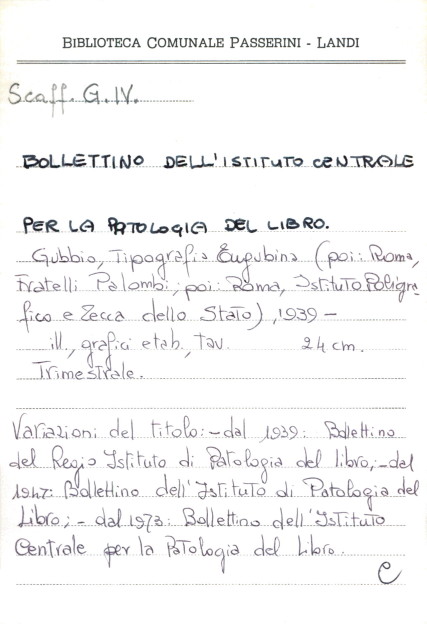 BIBLIOTECA COMUNALE PASSERINI - LANDI
Scaff. G.IV.
BOLLETTINO DELL'ISTITUTO CENTRALE
PER LA PATOLOGIA DEL LIBRO.
Gubbio, Tipografia Eugubina (poi: Roma,
Fratelli Palombi; poi: Roma, Istituto Poligra
fico e Zecca dello Stato), 1939 -
ill., grafici e tab., tav. 24 cm.
Trimestrale.
Variazioni del titolo: - dal 1939: Bollettino
del Regio Istituto di Patologia del libro; - dal
1947: Bollettino dell'Istituto di Patologia del
Libro; - dal 1973: Bollettino dell'Istituto
Centrale per la Patologia del Libro.
C